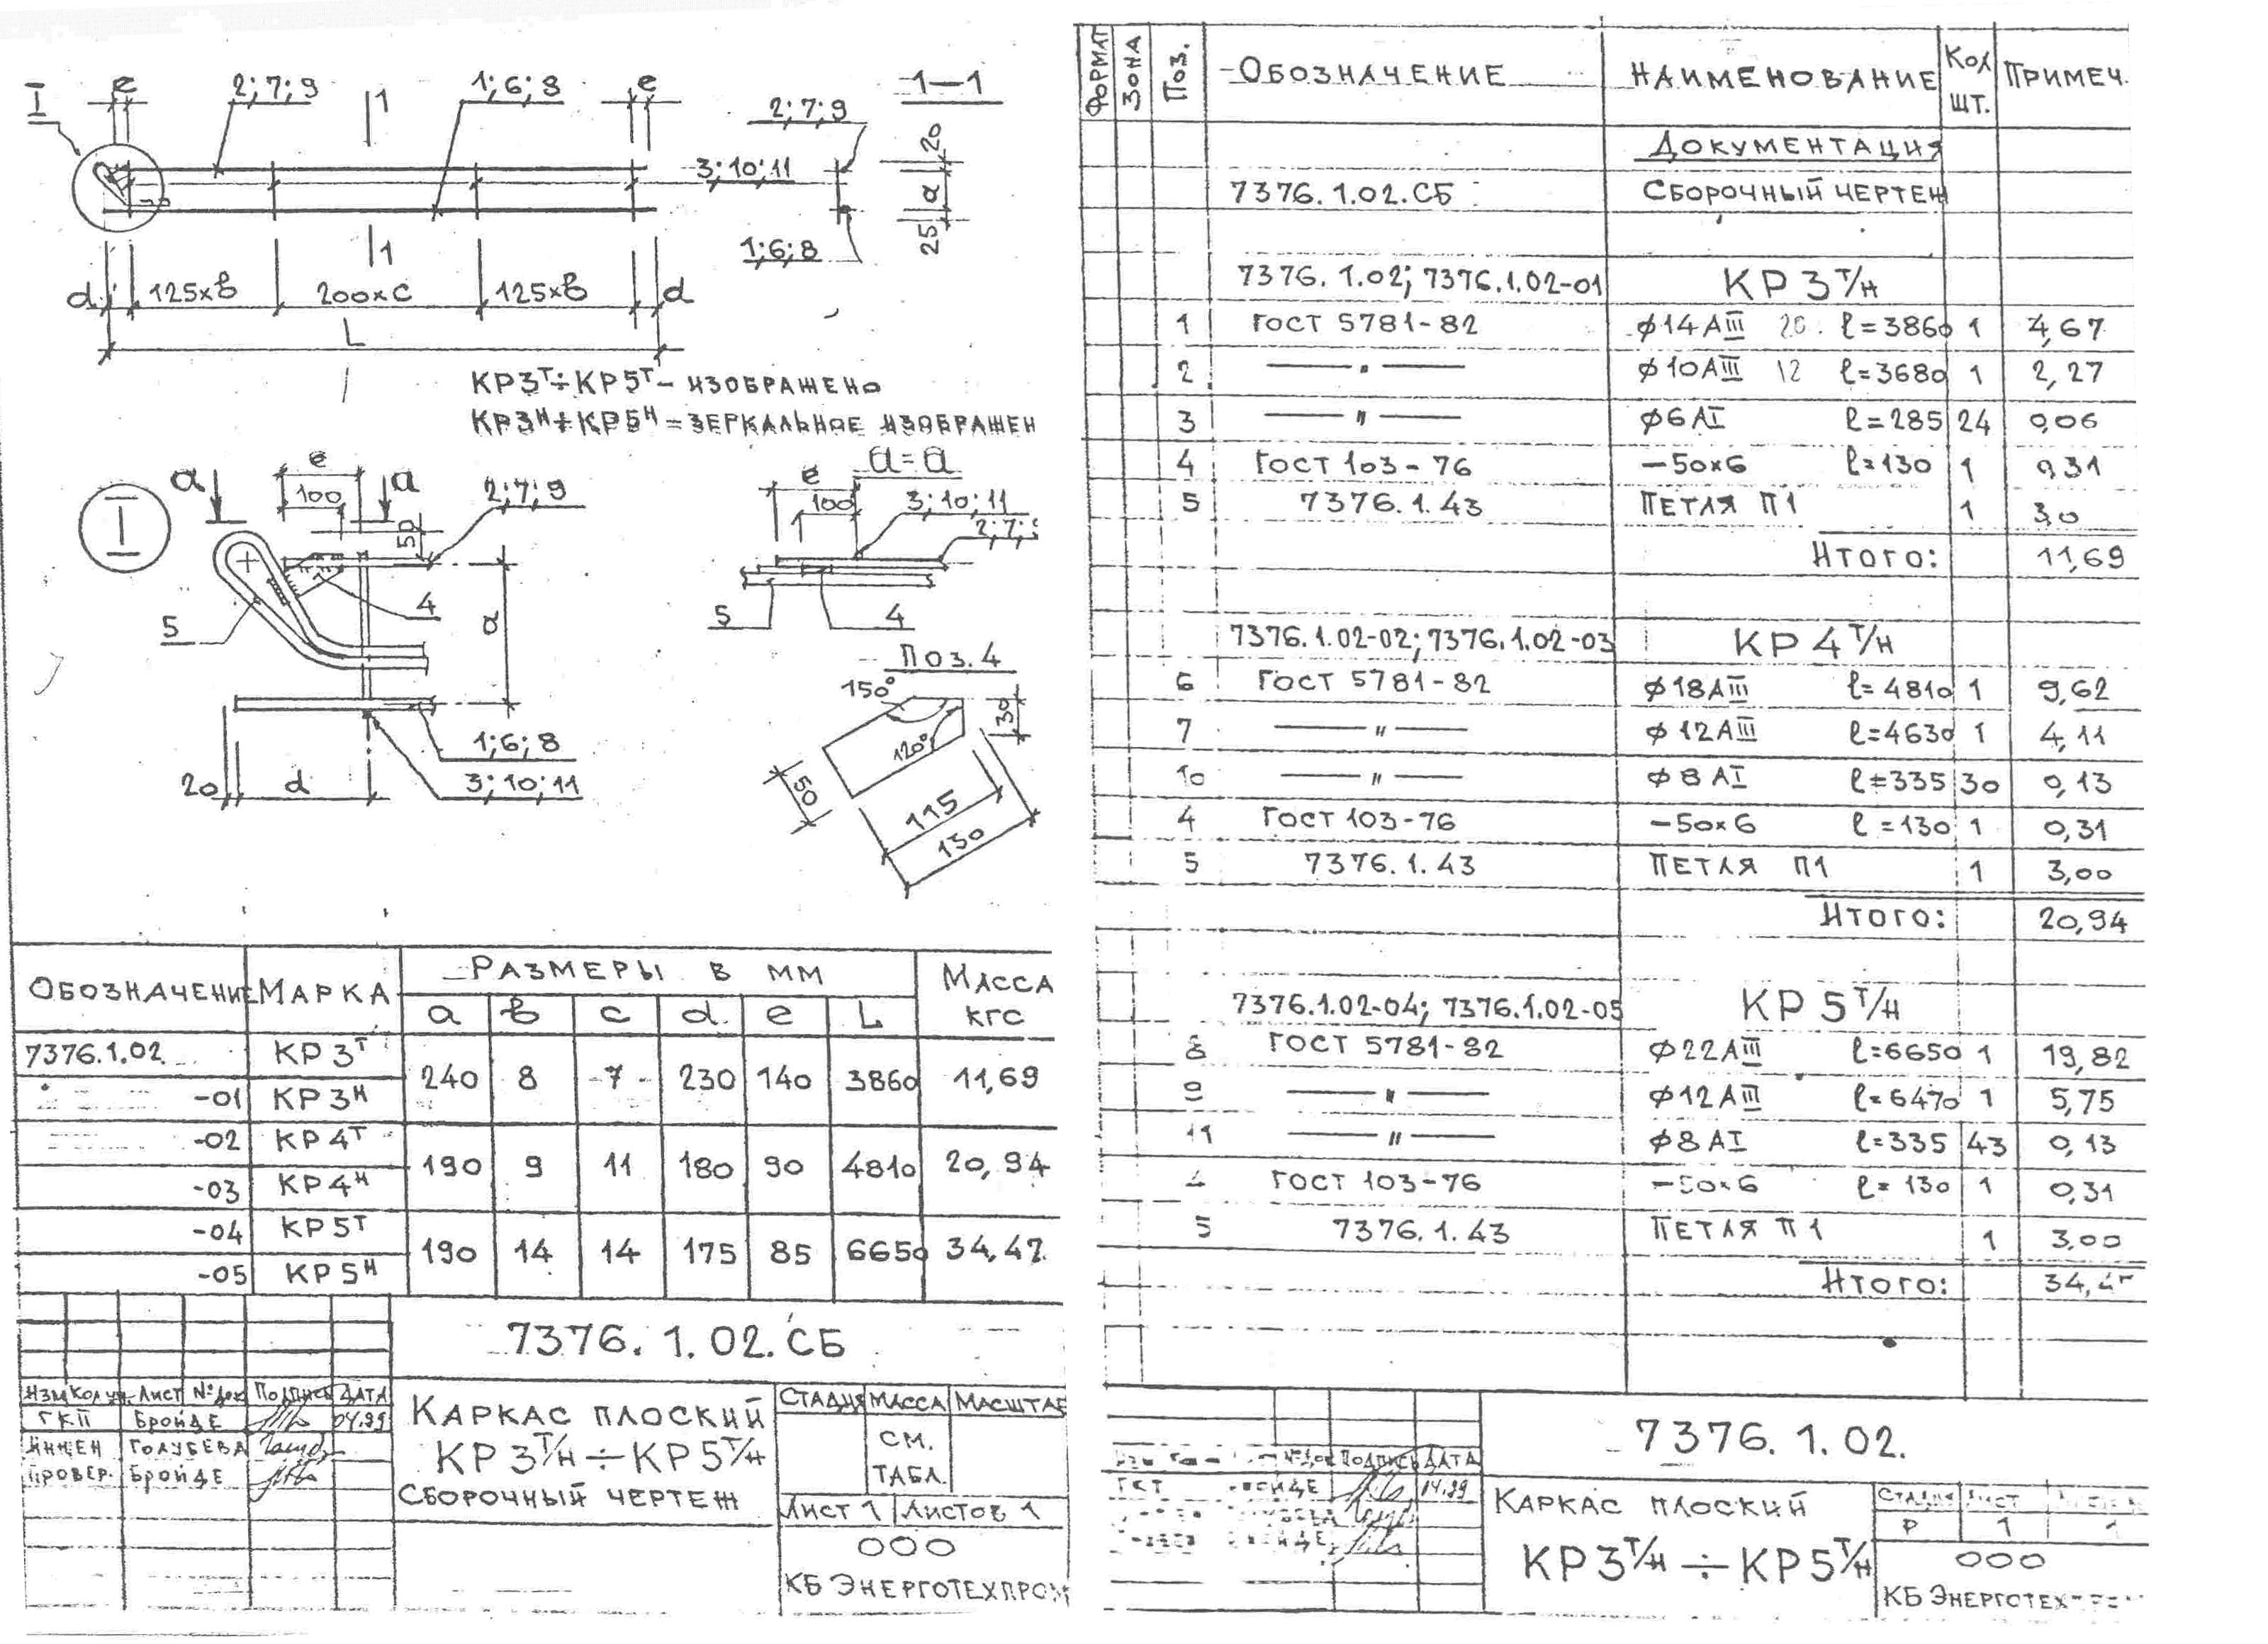 I
e
2;7;9
1
1;6;8
e
1—1
2;7;9
3;10;11
20
а
25
1;6;8
1
d
125хв
200хс
125хв
d
L
КР3Т÷КР5Т– ИЗОБРАЖЕНО
КР3Н÷КР5Н – ЗЕРКАЛЬНОЕ ИЗОБРАЖЕН
I
а
e
100
а
50
2;7;9
4
5
а
1;6;8
3;10;11
20
d
а-а
e
100
3;10;11
2;7;
5
4
Поз.4
150°
30
120°
50
115
130
ОБОЗНАЧЕНИЕ МАРКА РАЗМЕРЫ В ММ МАССА КГС
а в с d e L
7376.1.02 КР3Т 240 8 7 230 140 3860 11,69
-01 КР3Н
-02 КР4Т 190 9 11 180 90 4810 20,94
-03 КР4Н
-04 КР5Т 190 14 14 175 85 6650 34,47
-05 КР5Н
7376.1.02.СБ
ИЗМ КОЛ УЧ. ЛИСТ №ДОК ПОДПИСЬ ДАТА
ГКП БРОЙДЕ 04.99
ИНЖЕН ГОЛУБЕВА
ПРОВЕР. БРОЙДЕ
КАРКАС ПЛОСКИЙ
КР3Т/Н ÷ КР5Т/Н
СБОРОЧНЫЙ ЧЕРТЕЖ
СТАДИЯ МАССА МАСШТАБ
СМ.
ТАБЛ.
ЛИСТ 1 ЛИСТОВ 1
ООО
КБ ЭНЕРГОТЕХПРОМ
ФОРМАТ ЗОНА ПОЗ. ОБОЗНАЧЕНИЕ НАИМЕНОВАНИЕ КОЛ ШТ. ПРИМЕЧ.
ДОКУМЕНТАЦИЯ
7376.1.02.СБ СБОРОЧНЫЙ ЧЕРТЕЖ
7376.1.02; 7376.1.02-01 КР3Т/Н
1 ГОСТ 5781-82 ϕ14АIII 20 ℓ=3860 1 4,67
2 —"— ϕ10АIII 12 ℓ=3680 1 2,27
3 —"— ϕ6АI ℓ=285 24 0,06
4 ГОСТ 103-76 –50х6 ℓ=130 1 0,31
5 7376.1.43 ПЕТЛЯ П1 1 3,0
ИТОГО: 11,69
7376.1.02-02; 7376.1.02-03 КР4Т/Н
6 ГОСТ 5781-82 ϕ18АIII ℓ=4810 1 9,62
7 —"— ϕ12АIII ℓ=4630 1 4,11
10 —"— ϕ8АI ℓ=335 30 0,13
4 ГОСТ 103-76 –50х6 ℓ=130 1 0,31
5 7376.1.43 ПЕТЛЯ П1 1 3,00
ИТОГО: 20,94
7376.1.02-04; 7376.1.02-05 КР5Т/Н
8 ГОСТ 5781-82 ϕ22АIII ℓ=6650 1 19,82
9 —"— ϕ12АIII ℓ=6470 1 5,75
11 —"— ϕ8АI ℓ=335 43 0,13
4 ГОСТ 103-76 –50х6 ℓ=130 1 0,31
5 7376.1.43 ПЕТЛЯ П1 1 3,00
ИТОГО:
7376.1.02.
№ДОК ПОДПИСЬ ДАТА
04.99
КАРКАС ПЛОСКИЙ
КР3Т/Н ÷ КР5Т/Н
СТАДИЯ ЛИСТ
Р 1 1
ООО